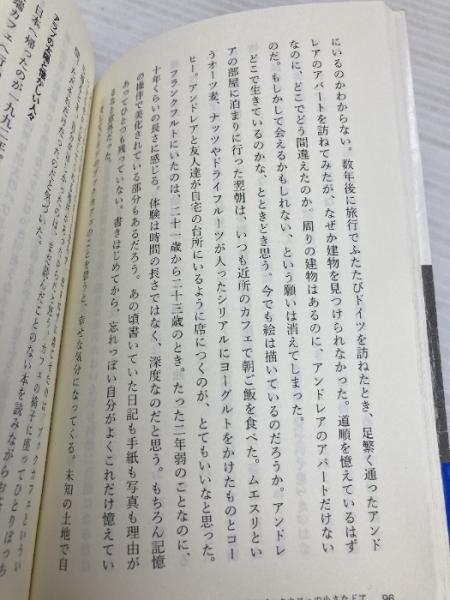 にいるのかわからない。数年後に旅行でふたたびドイツを訪ねたとき、足繁く通ったアンド
レアのアパートを訪ねてみたが、なぜか建物を見つけられなかった。道順を憶えているはず
なのに、どこでどう間違えたのか。周りの建物はあるのに、アンドレアのアパートだけない
のだ。もしかして会えるかもしれない、という願いは消えてしまった。
どこで生きているのかな、とときどき思う。今でも絵は描いているのだろうか。アンドレ
アの部屋に泊まりに行った翌朝は、いつも近所のカフェで朝ご飯を食べた。ムエスリとい
うオーツ麦、ナッツやドライフルーツが入ったシリアルにヨーグルトをかけたものとコー
ヒー。アンドレアと友人達が自宅の台所にいるように席につくのが、とてもいいなと思った。
フランクフルトにいたのは、二十一歳から二十三歳のとき。たった二年弱のことなのに、
十年くらいの長さに感じる。体験は時間の長さではなく、深度なのだと思う。もちろん記憶
の操作で美化されている部分もあるだろう。あの頃書いていた日記も手紙も写真も理由が
あってひとつも残っていない。書きはじめてから、忘れっぽい自分がよくこれだけ憶えてい
るなと意外だった。
ブックカフェのことを思うと、幸せな気分になってくる。未知の土地で自
の小さなドア
96